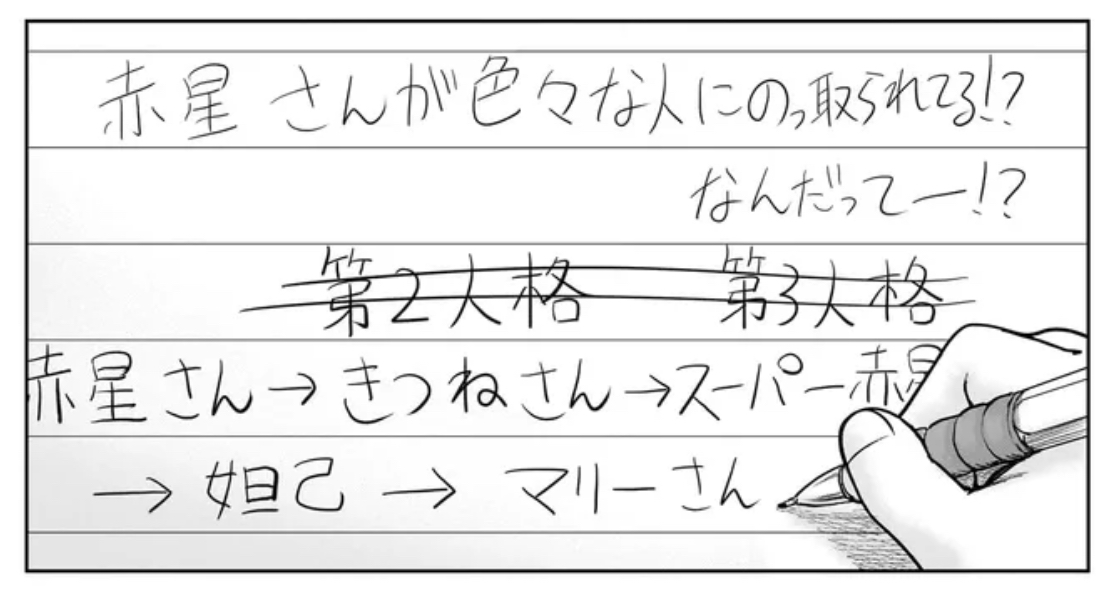 赤星さんが色々な人にのっ取られてる!?
なんだってー!?
第2人格 第3人格
赤星さん→きつねさん→スーパー赤
→妲己→マリーさん